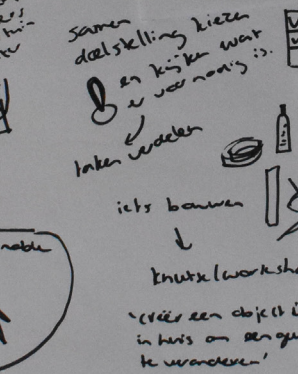 samen
doelstelling kiezen
en kijken wat
er voor nodig is.
taken verdelen
iets bouwen
knutselworksho
'creëer een object i
in huis om een ge
te veranderen'